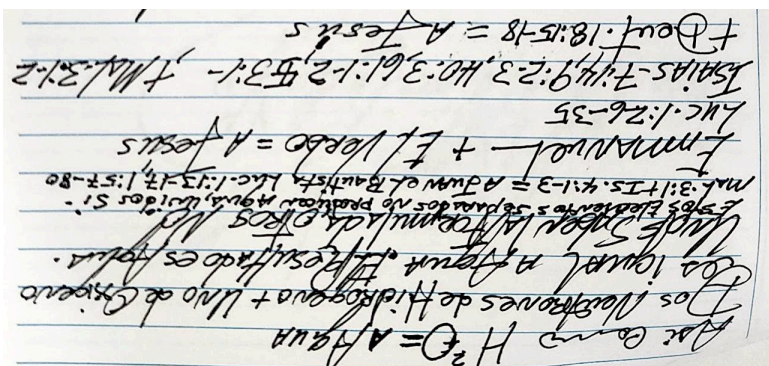 Asi Como H²O = A Agua
Dos Neutrones de Hidrogeno + Uno de Oxigeno
Es igual a Agua. El Resultado es Agua.
Unos Saben la Formula, otros NO
Estos Elementos separados no producen Agua, unidos Si.
Mal. 3:1 + Is. 4:1-3 = A Juan el Bautista Luc. 1:13-17, 1:57-80
Emmanuel + El Verbo = A Jesus
Luc. 1:26-35
Isaias - 7:14, 9:2-3, 40:3, 61:1-2, 53:1- + Mal. 3:1-2
+ Deut. 18:15-18 = A Jesus